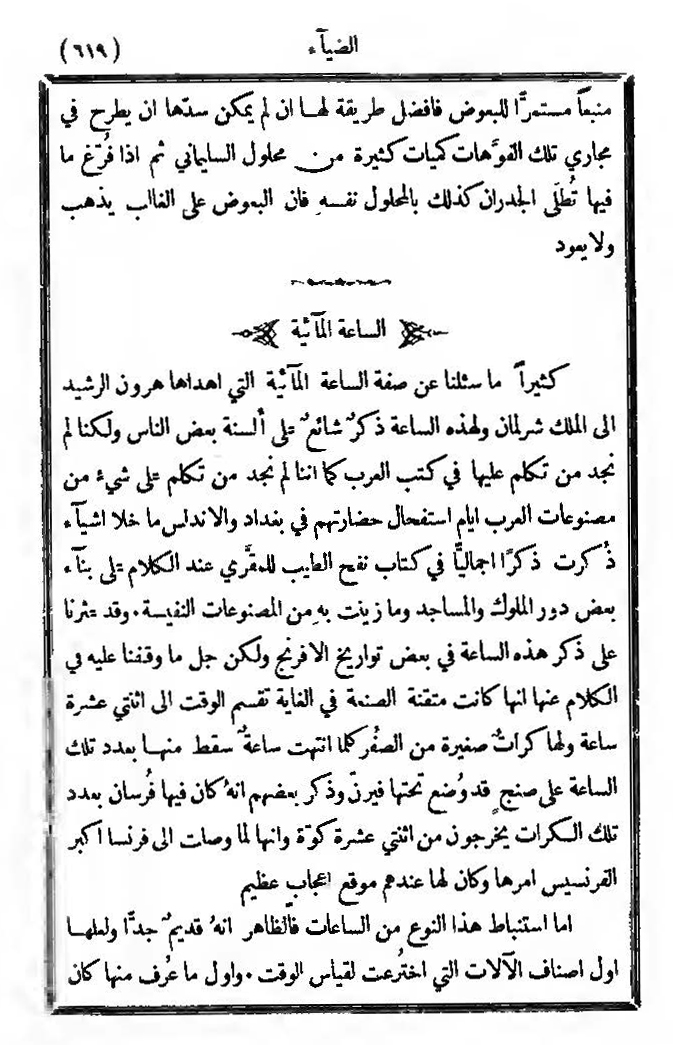 الضيآء
(٦١٩)
منبعاً مستمرًّا للبعوض فافضل طريقة لها ان لم يمكن سدّها ان يطرح في
مجاري تلك الفوَّهات كميات كثيرة من محلول السليماني ثم اذا فُرّغ ما
فيها تُطلَى الجدران كذلك بالمحلول نفسهِ فان البعوض على الغالب يذهب
ولا يعود
الساعة المآئية
كثيراً ما سئلنا عن صفة الساعة المآئية التي اهداها هرون الرشيد
الى الملك شرلمان ولهذه الساعة ذكرٌ شائعٌ على ألسنة بعض الناس ولكنا لم
نجد من تكلم عليها في كتب العرب كما اننا لم نجد من تكلم على شيء من
مصنوعات العرب ايام استفحال حضارتهم في بغداد والاندلس ما خلا اشيآء
ذُكرت ذكرًا اجماليًّا في كتاب نفح الطيب للمقَّري عند الكلام على بنآء
بعض دور الملوك والمساجد وما زينت بهِ من المصنوعات النفيسة . وقد عثرنا
على ذكر هذه الساعة في بعض تواريخ الافرنج ولكن جل ما وقفنا عليه في
الكلام عنها انها كانت متقنة الصنعة في الغاية تقسم الوقت الى اثنتي عشرة
ساعة ولها كراتٌ صغيرة من الصُفر كلما انتهت ساعةٌ سقط منها بعدد تلك
الساعة على صنجٍ قد وُضع تحتها فيرنّ وذكر بعضهم انهُ كان فيها فُرسان بعدد
تلك الكرات يخرجون من اثنتي عشرة كوّة وانها لما وصلت الى فرنسا اكبر
الفرنسيس امرها وكان لها عندهم موقع اعجابٍ عظيم
اما استنباط هذا النوع من الساعات فالظاهر انهُ قديمٌ جدًّا ولعلها
اول اصناف الآلات التي اختُرعت لقياس الوقت . واول ما عُرف منها كان